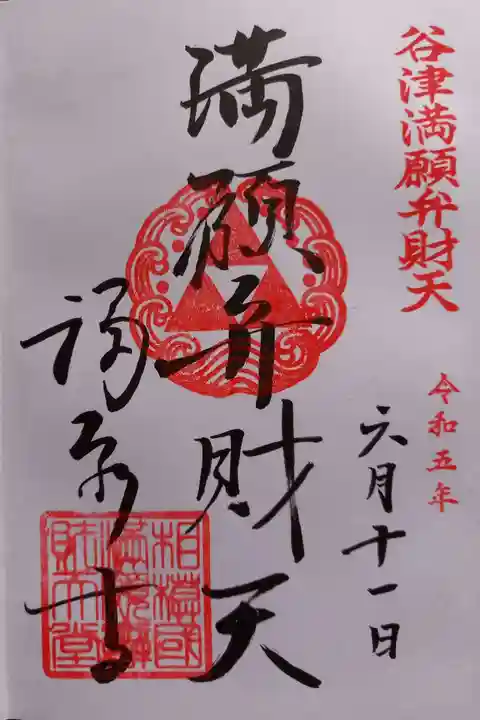 谷津満願弁財天
令和五年
六月十一日
満願弁財天
福泉寺
相模國
満願辨
財天堂